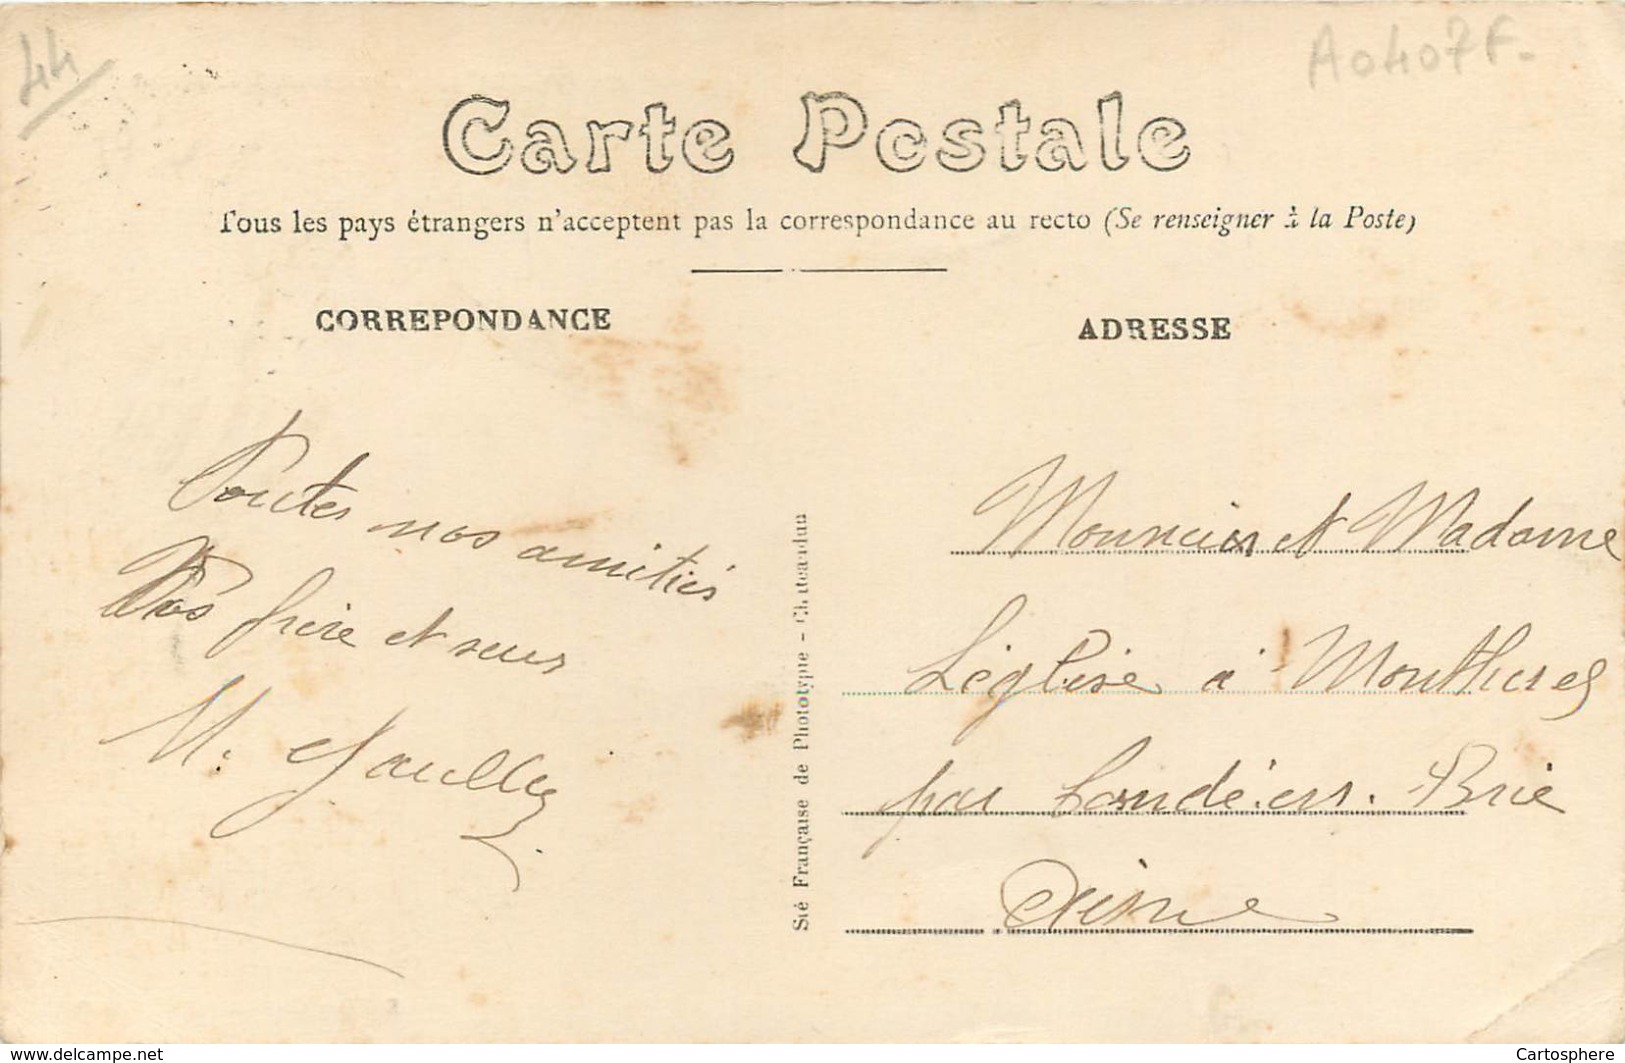 44
A0407F.
Carte Postale
Tous les pays étrangers n'acceptent pas la correspondance au recto (Se renseigner à la Poste)
CORREPONDANCE
Toutes nos amitiés
Vos frère et sœur
M.
Sté Française de Phototypie - Chateaudun
ADRESSE
Monsieur et Madame
Léglise à Monthurel
par Condé.en. Brie
Aisne
www.delcampe.net
Cartosphere